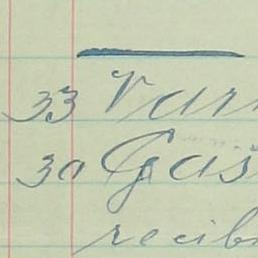 33 Vari
30 Gas
recib